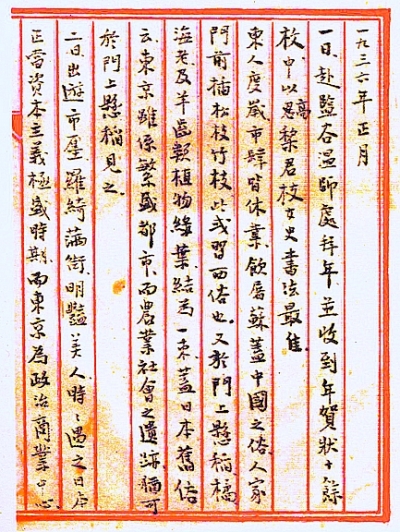 一九三六年正月
一日赴盐谷温师處拜年並收到年賀狀十餘
枚中以高黎君枝女史書法最佳
東人度歲市肆皆休業飲屠蘇蓋中國之俗人家
門前插松枝竹枝此或習西俗也又於門上懸稻橘
海老及羊齒類植物綠葉結为一束蓋日本舊俗
云東京雖係繁盛都市而農業社會之遺跡猶可
於門上懸稻見之
二日出遊市廛羅綺满街明豔美人時〻遇之日本
正當資本主義極盛時期而東京為政治商業中心